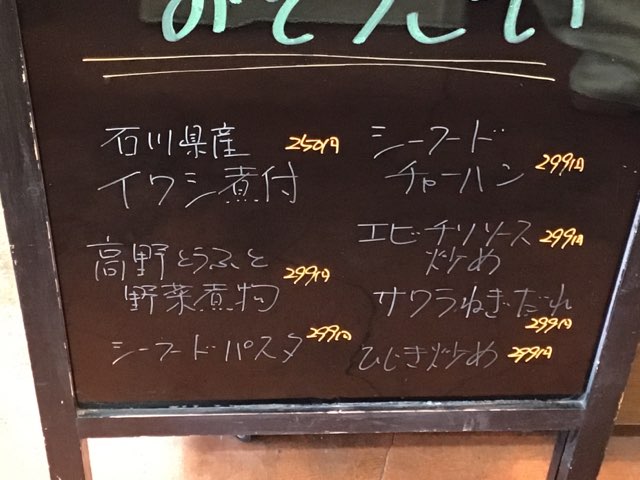 おそうざい
石川県産 250円
イワシ煮付
高野とうふと
野菜煮物 299円
シーフードパスタ 299円
シーフード
チャーハン 299円
エビチリソース
炒め 299円
サワラねぎだれ
299円
ひじき炒め 299円